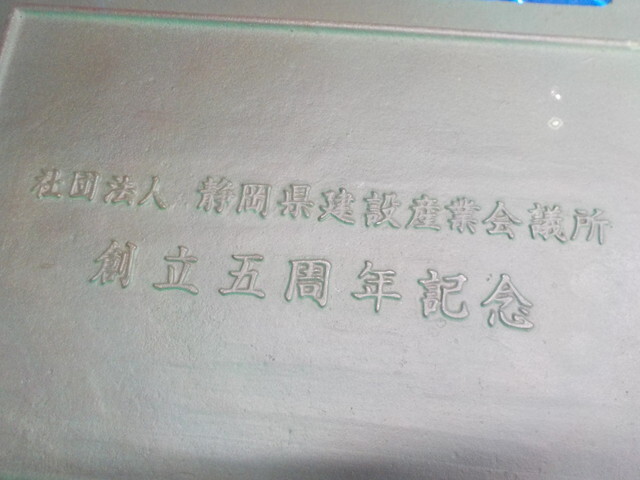 社団法人 静岡県建設産業会議所
創立五周年記念